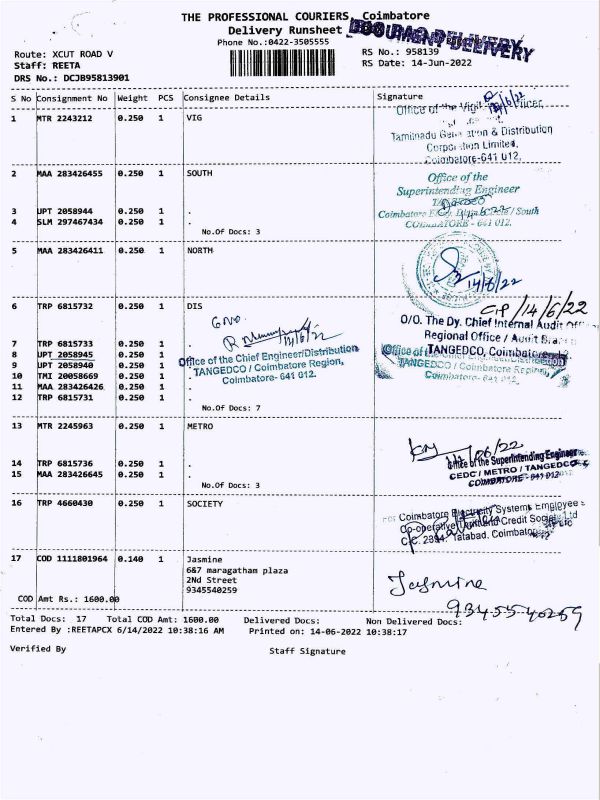 THE PROFESSIONAL COURIERS, Coimbatore
Delivery Runsheet
DOCUMENT DELIVERY
Phone No.:0422-3505555
Route: XCUT ROAD V
Staff: REETA
DRS No.: DCJB95813901
RS No.: 958139
RS Date: 14-Jun-2022
S No Consignment No Weight PCS Consignee Details Signature
1 MTR 2243212 0.250 1 VIG
Office of the
Tamilnadu & Distribution
Limited,
Coimbatore-641 012.
2 MAA 283426455 0.250 1 SOUTH
Office of the
Superintending Engineer
TANGEDCO
Coimbatore / South
COIMBATORE - 641 012.
3 UPT 2058944 0.250 1 .
4 SLM 297467434 0.250 1 .
No.Of Docs: 3
5 MAA 283426411 0.250 1 NORTH
14/6/22
6 TRP 6815732 0.250 1 DIS
14/6/22
O/O. The Dy. Chief Internal Audit
Regional Office / Audit
TANGEDCO, Coimbatore
7 TRP 6815733 0.250 1 .
8 UPT 2058945 0.250 1 .
9 UPT 2058940 0.250 1 .
10 TMI 20058669 0.250 1 .
11 MAA 283426426 0.250 1 .
12 TRP 6815731 0.250 1 .
Office of the Chief Engineer/Distribution
TANGEDCO / Coimbatore Region,
Coimbatore- 641 012.
Office of the Chief Engineer/Distribution
TANGEDCO / Coimbatore Region,
Coimbatore- 641 012.
No.Of Docs: 7
13 MTR 2245963 0.250 1 METRO
/06/22
Office of the Superintending Engineer
CEDC / METRO / TANGEDCO
COIMBATORE - 641 012
14 TRP 6815736 0.250 1 .
15 MAA 283426645 0.250 1 .
No.Of Docs: 3
16 TRP 4660430 0.250 1 SOCIETY
For Coimbatore Electricity Systems Employees
Co-operative Thrift and Credit Society Ltd
C.C. Tatabad, Coimbatore
17 COD 1111801964 0.140 1 Jasmine
6&7 maragatham plaza
2Nd Street
9345540259
COD Amt Rs.: 1600.00
Jasmine
9345540259
Total Docs: 17 Total COD Amt: 1600.00 Delivered Docs: Non Delivered Docs:
Entered By :REETAPCX 6/14/2022 10:38:16 AM Printed on: 14-06-2022 10:38:17
Verified By Staff Signature